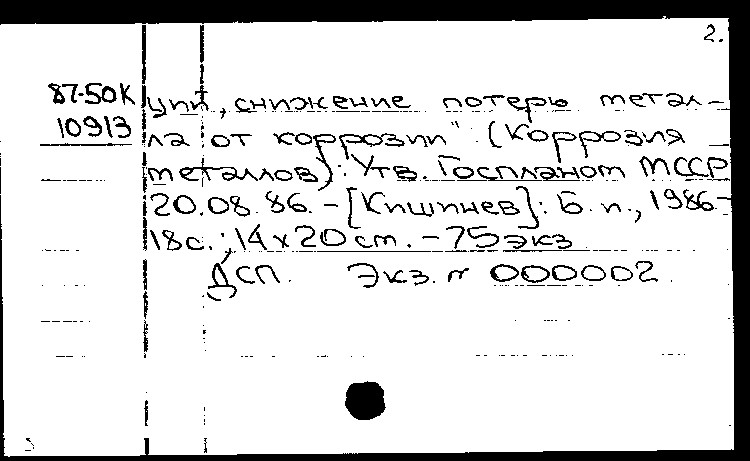 2.
87-50К
10913
ций, снижение потерь метал-
ла от коррозии" (Коррозия
металлов): Утв. Госпланом МССР
20.08.86. - [Кишинев]: Б. и., 1986 -
18с.; 14 х 20 см. - 75 экз
ДСП. Экз. № 000002